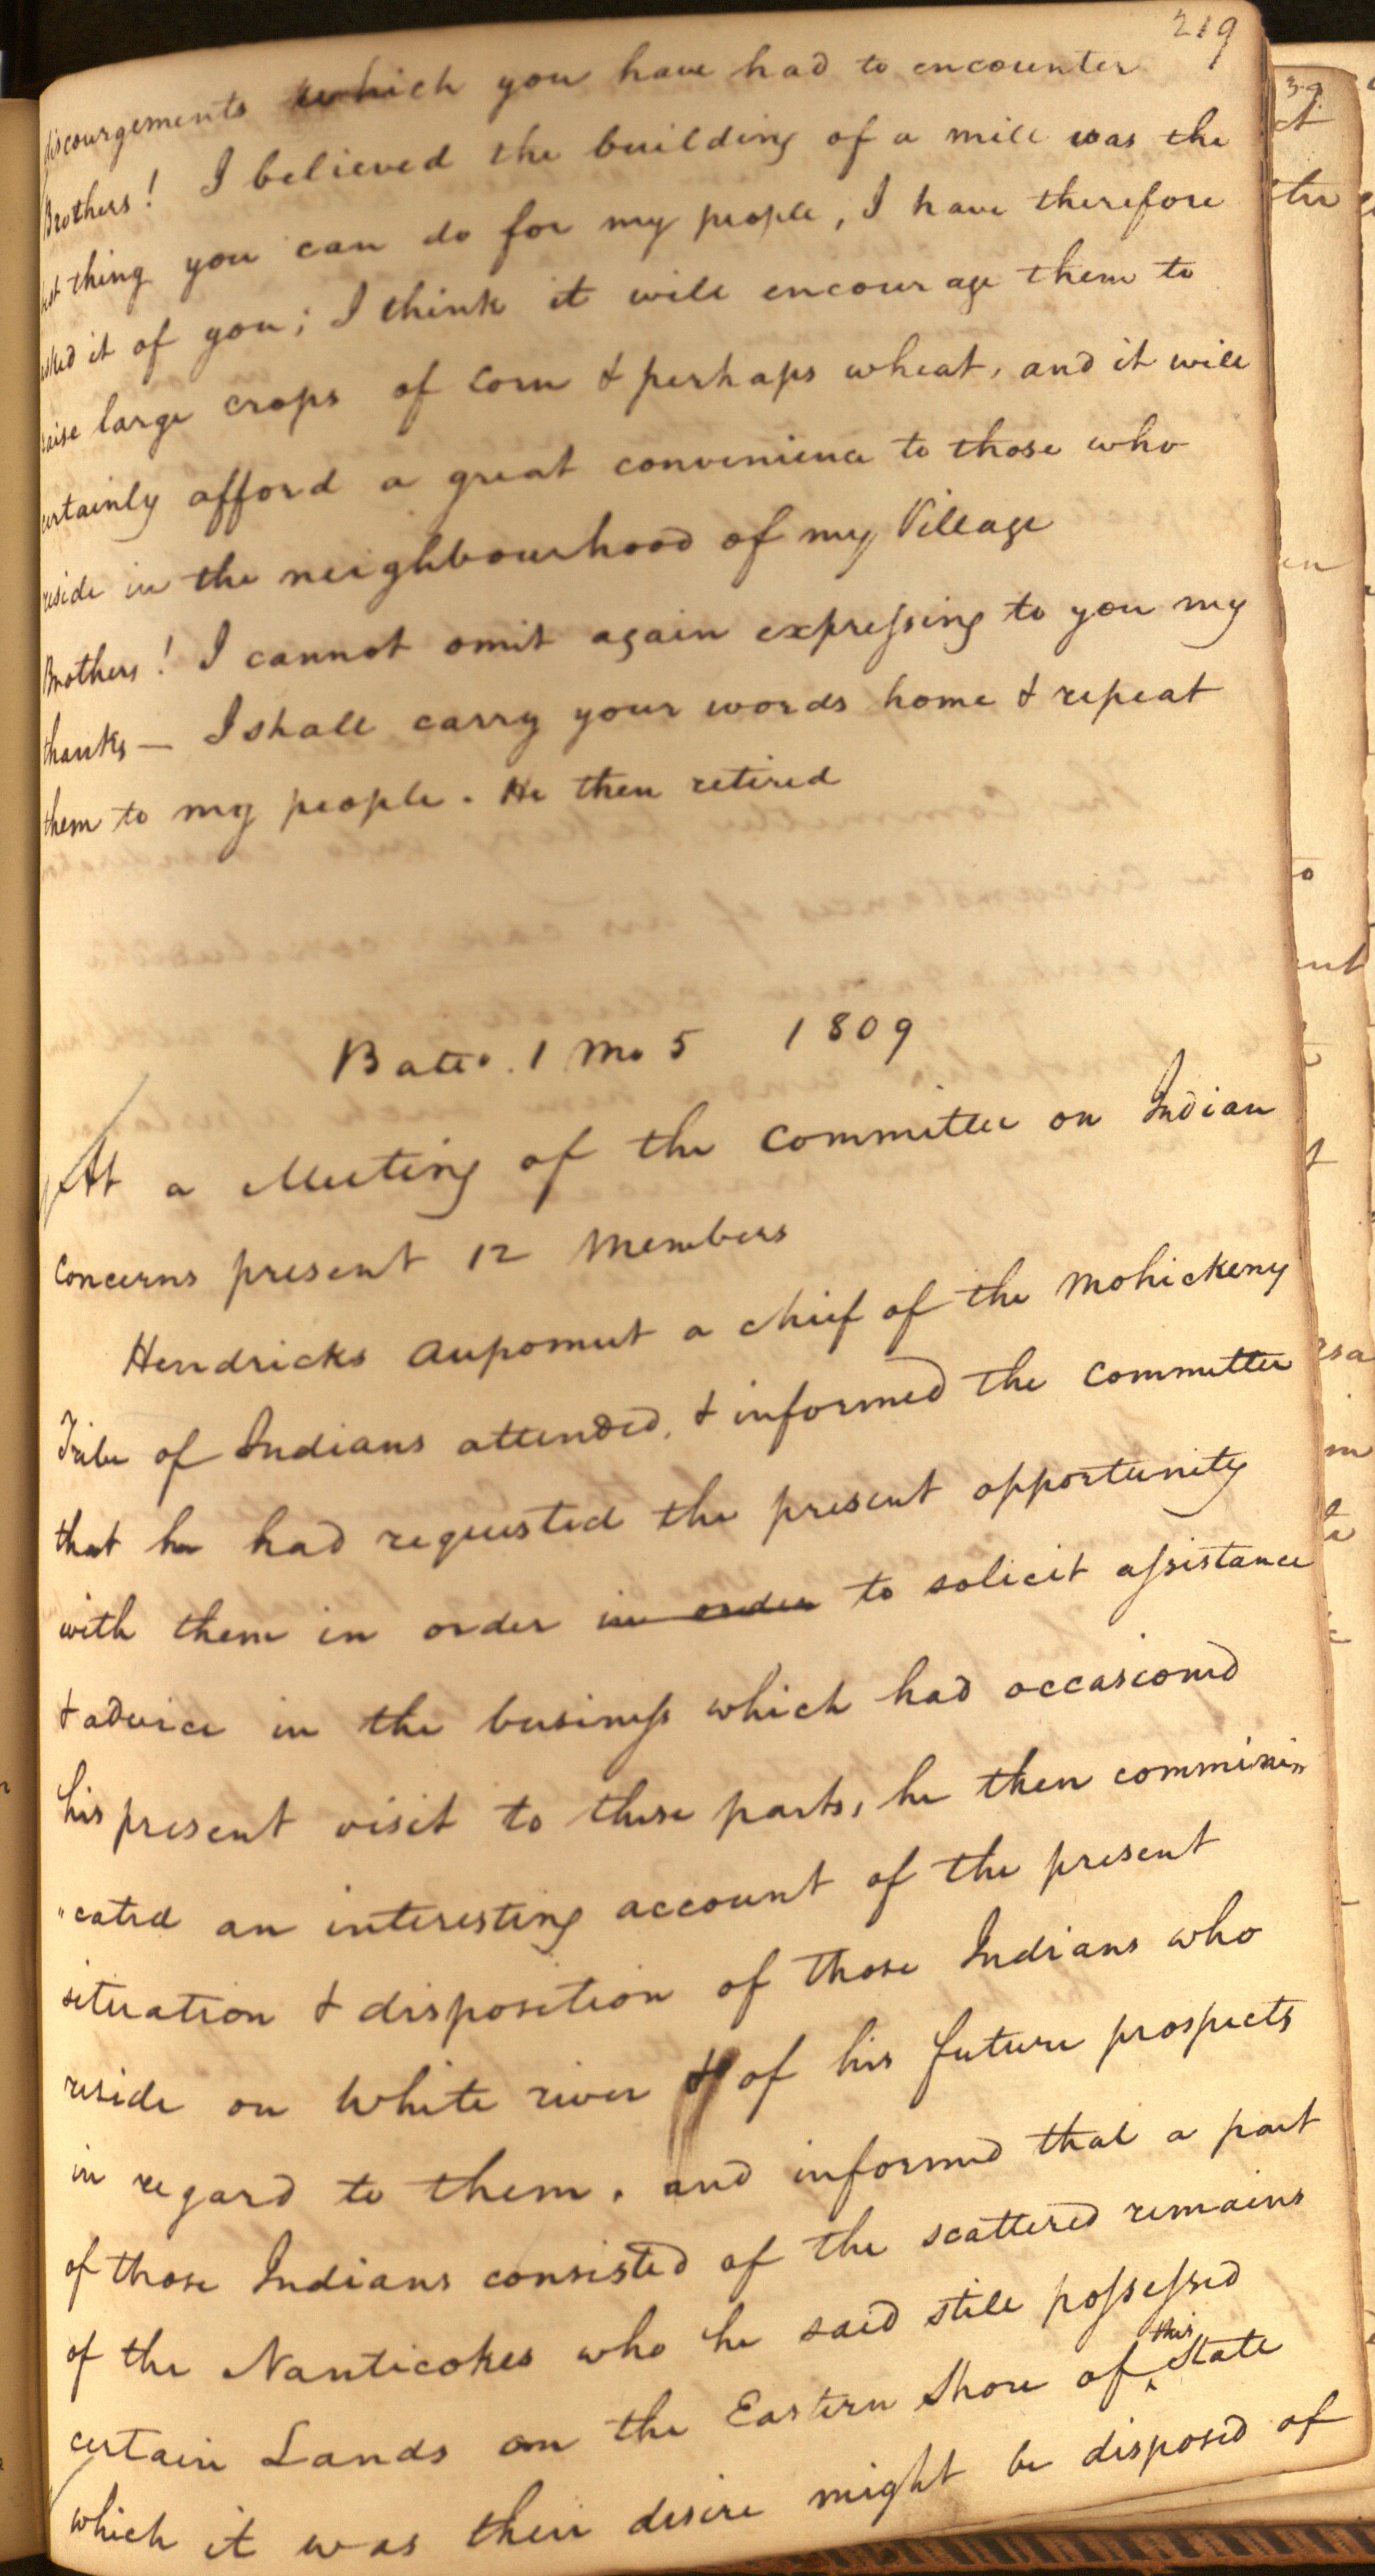 219
discourgements which you have had to encounter
Brothers! I believed the building of a mill was the
thing you can do for my people, I have therefore
asked it of you; I think it will encourage them to
raise large crops of Corn & perhaps wheat, and it will
certainly afford a great convenience to those who
reside in the neighbourhood of my Village
Brothers! I cannot omit again expressing to you my
thanks — I shall carry your words home & repeat
them to my people. He then retired
Balto. 1 Mo 5 1809
At a Meeting of the Committee on Indian
Concerns present 12 Members
Hendricks Aupomut a chief of the Mohickeny
Tribe of Indians attended, & informed the Committee
that he had requested the present opportunity
with them in order in order to solicit assistance
& advice in the business which had occasiond
his present visit to these parts, he then comminin
"cated an interesting account of the present
situation & disposition of those Indians who
reside on White river & of his future prospects
in regard to them. and informd that a part
of those Indians consisted of the scattered remains
of the Nanticokes who he said still possessed
certain Lands on the Eastern Shore of this State
which it was their desire might be disposed of